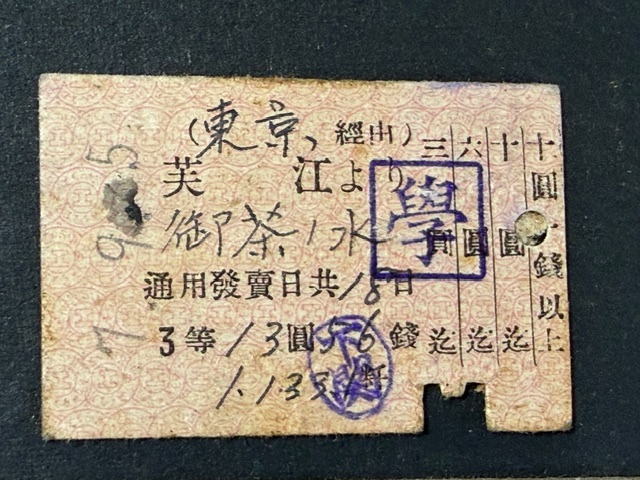 (東京、經由)
芙江より
御茶ノ水
通用發賣日共18日
3等13圓56錢
粁
學
下關
十圓一錢以上
十圓迄
六圓迄
三圓迄